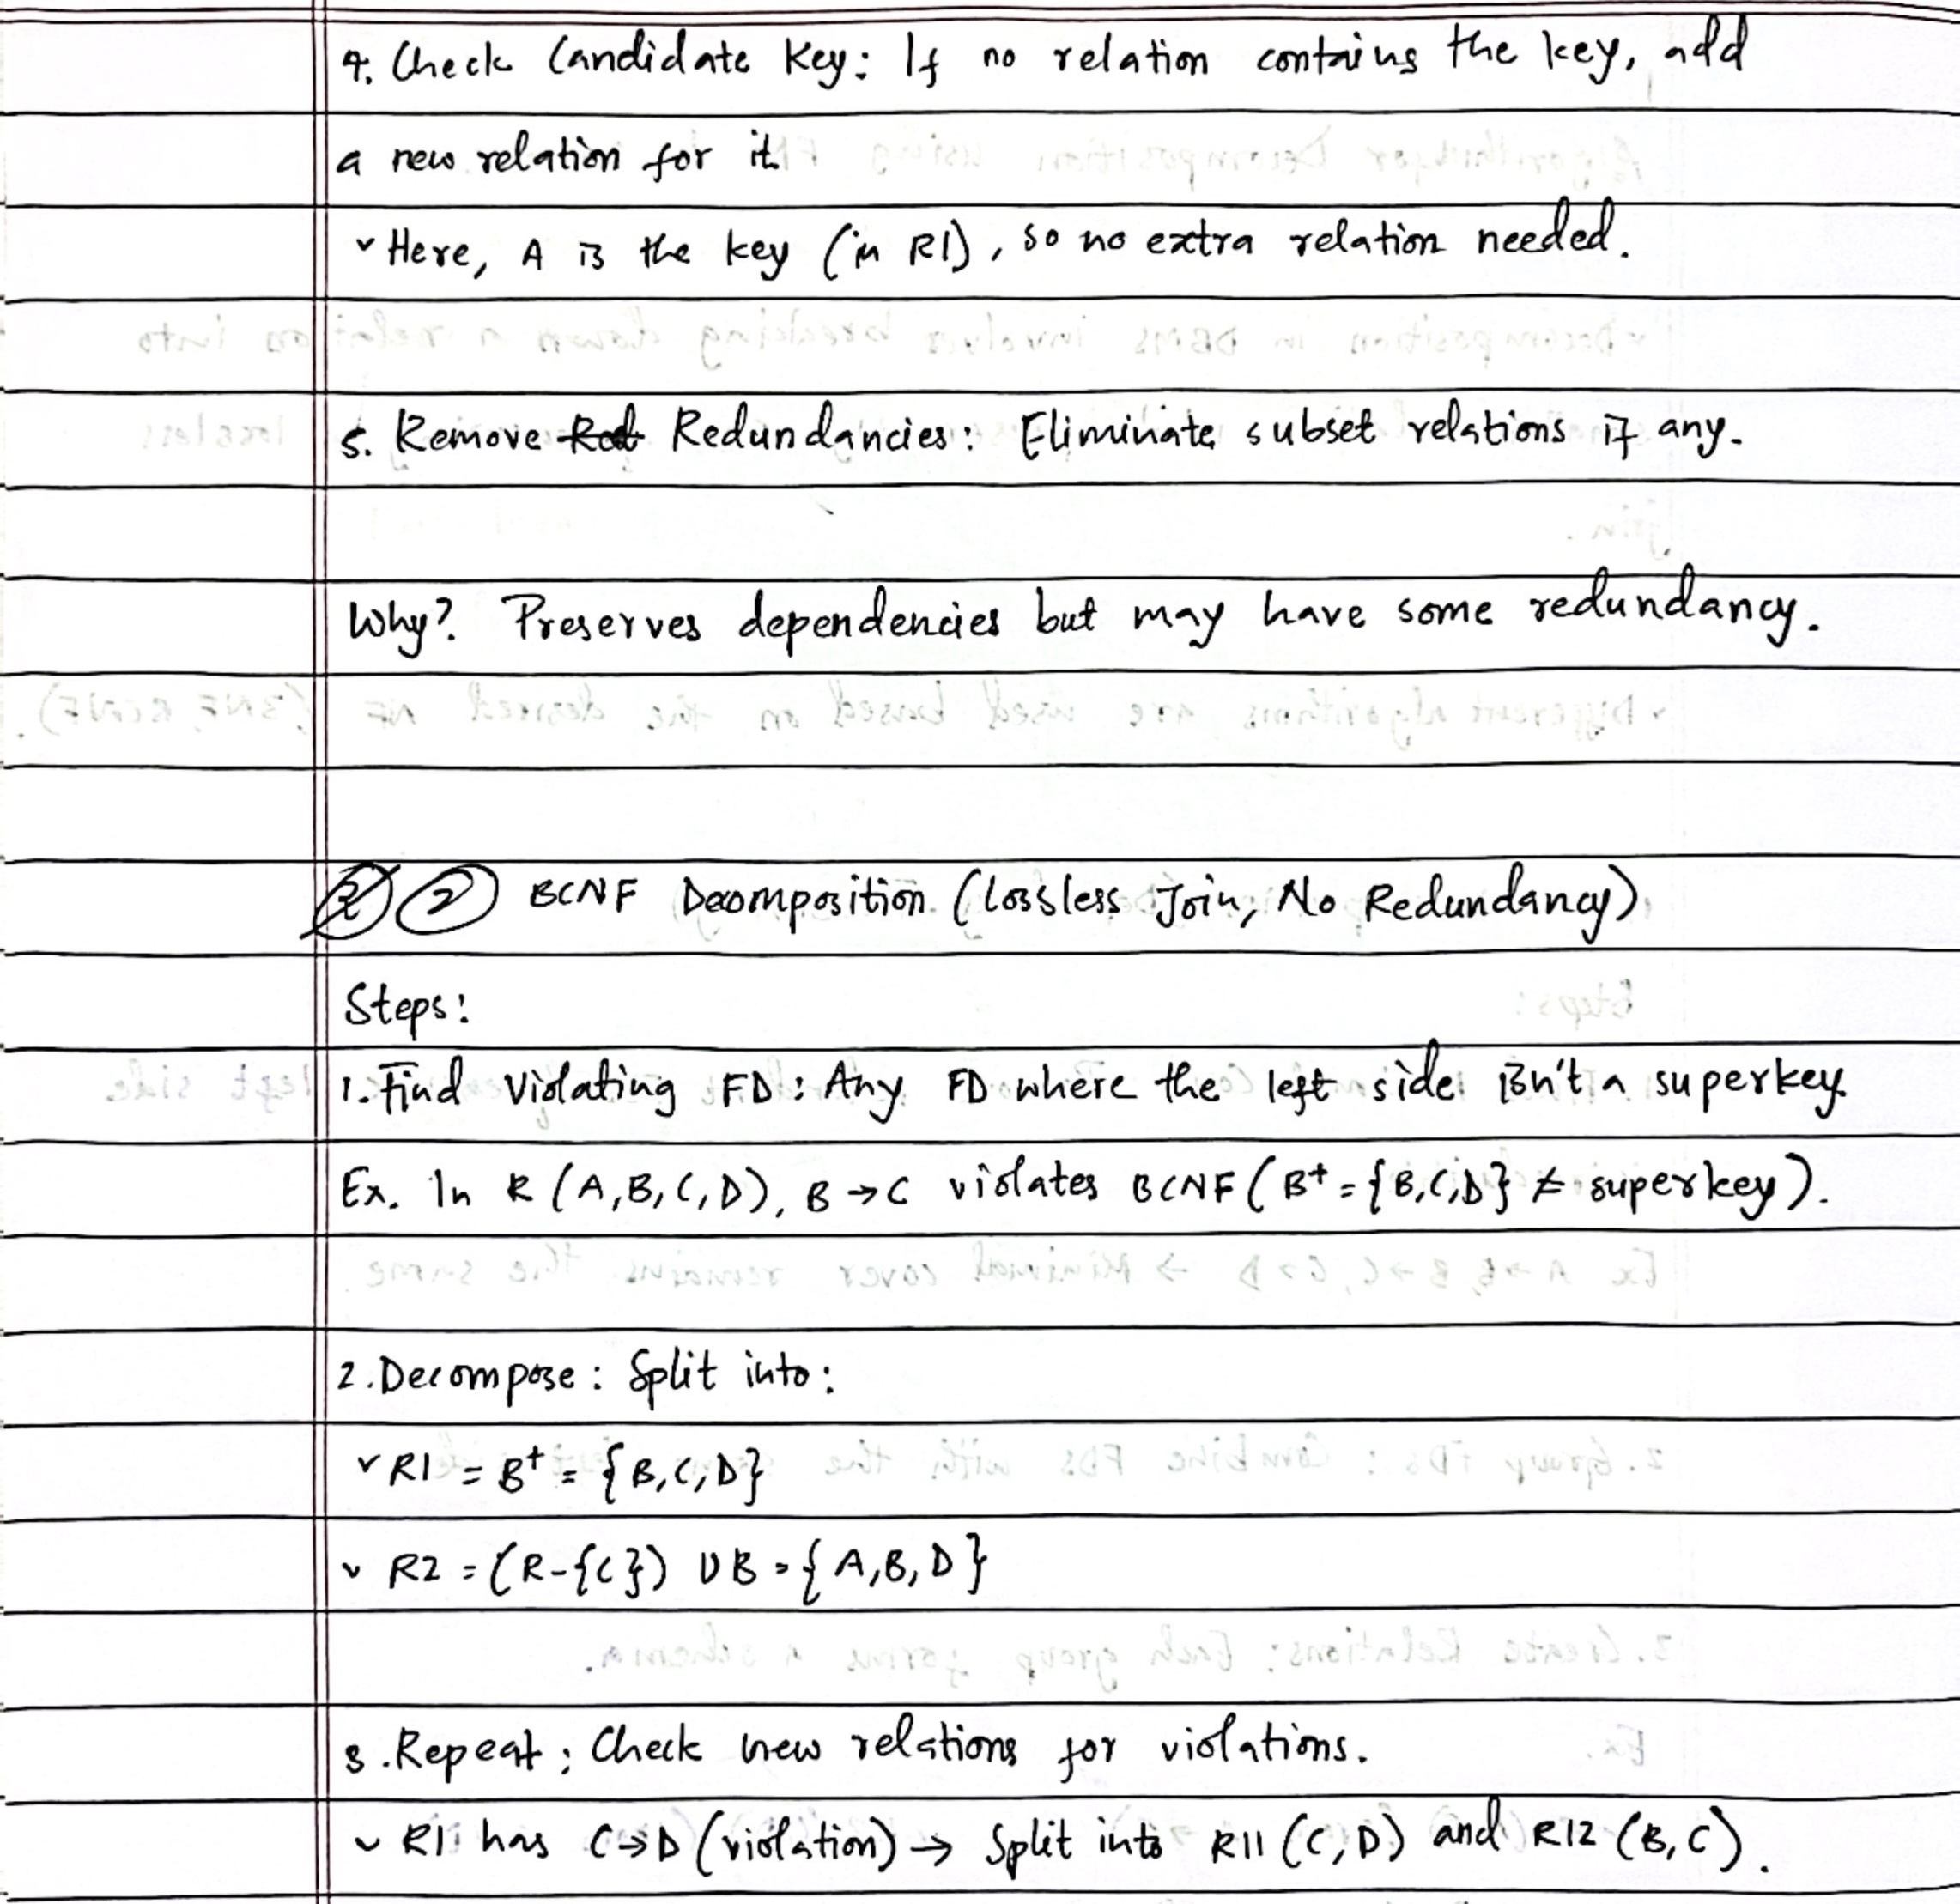 4. Check Candidate Key: If no relation contains the key, add
a new relation for it
✓ Here, A is the key (in R1), so no extra relation needed.
5. Remove Red Redundancies: Eliminate subset relations if any.
Why? Preserves dependencies but may have some redundancy.
2 2 BCNF Decomposition (Lossless Join, No Redundancy)
Steps:
1. Find Violating FD: Any FD where the left side isn't a superkey.
Ex. In R (A,B,C,D), B→C violates BCNF (B+ = {B,C,D} ≠ superkey).
2. Decompose: Split into:
✓ R1 = B+ = {B,C,D}
✓ R2 = (R-{C}) ∪ B = {A,B,D}
3. Repeat: Check new relations for violations.
✓ R1 has C→D (violation) → Split into R11 (C,D) and R12 (B,C).